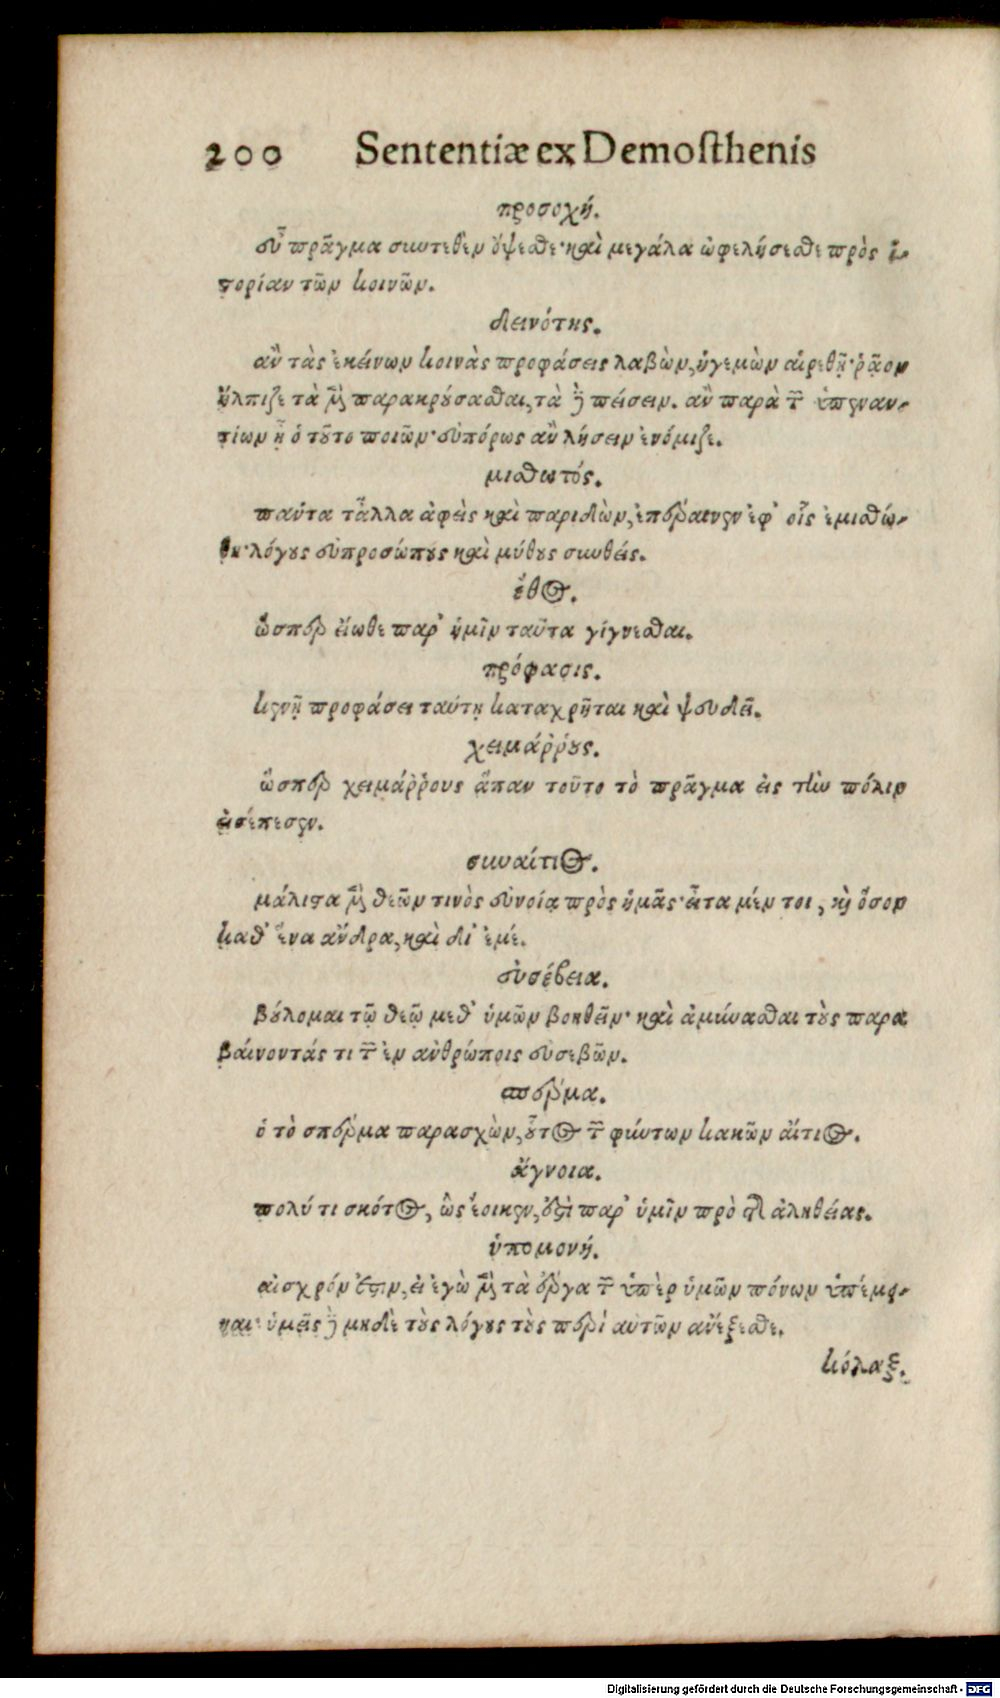 200 Sententiæ ex Demosthenis
προσοχή.
εὖ πρᾶγμα συντεθὲν ὄψεσθε· καὶ μεγάλα ὠφελήσεσθε πρὸς ἱ-
στορίαν τῶν κοινῶν.
δεινότης.
ἂν τὰς ἐκείνων κοινὰς προφάσεις λαβὼν, ἡγεμὼν αἱρεθῇ· ῥᾷον
ἤλπιζε τὰ μὲν παρακρούσασθαι, τὰ δὲ πείσειν. ἂν παρὰ τῶν ὑπεναν-
τίων ᾖ ὁ τοῦτο ποιῶν· εὐπόρως ἂν λήσειν ἐνόμιζε.
μισθωτός.
πάντα τἄλλα ἀφεὶς καὶ παριδὼν, ἐπέραινεν ἐφ' οἷς ἐμισθώ-
θη· λόγους εὐπροσώπους καὶ μύθους συνθείς.
ἔθος.
ὥσπερ εἴωθε παρ' ἡμῖν ταῦτα γίγνεσθαι.
πρόφασις.
κενῇ προφάσει ταύτῃ καταχρῆται καὶ ψευδεῖ.
χειμάῤῥους.
ὥσπερ χειμάῤῥους ἅπαν τοῦτο τὸ πρᾶγμα εἰς τὴν πόλιν
εἰσέπεσεν.
συναίτιος.
μάλιστα μὲν θεῶν τινὸς εὐνοίᾳ πρὸς ἡμᾶς· εἶτα μέν τοι, καὶ ὅσον
καθ' ἕνα ἄνδρα, καὶ δι' ἐμέ.
εὐσέβεια.
βούλομαι τῷ θεῷ μεθ' ὑμῶν βοηθεῖν· καὶ ἀμύνασθαι τοὺς παρα
βαίνοντάς τι τῶν ἐν ἀνθρώποις εὐσεβῶν.
σπέρμα.
ὁ τὸ σπέρμα παρασχὼν, οὗτος τῶν φύντων κακῶν αἴτιος.
ἄγνοια.
πολύ τι σκότος, ὡς ἔοικεν, ἐστὶ παρ' ὑμῖν πρὸ τῆς ἀληθείας.
ὑπομονή.
αἰσχρόν ἐστιν, εἰ ἐγὼ μὲν τὰ ἔργα τῶν ὑπὲρ ὑμῶν πόνων ὑπέμει-
ναι· ὑμεῖς δὲ μηδὲ τοὺς λόγους τοὺς περὶ αὐτῶν ἀνέξεσθε.
κόλαξ.
Digitalisierung gefördert durch die Deutsche Forschungsgemeinschaft - DFG